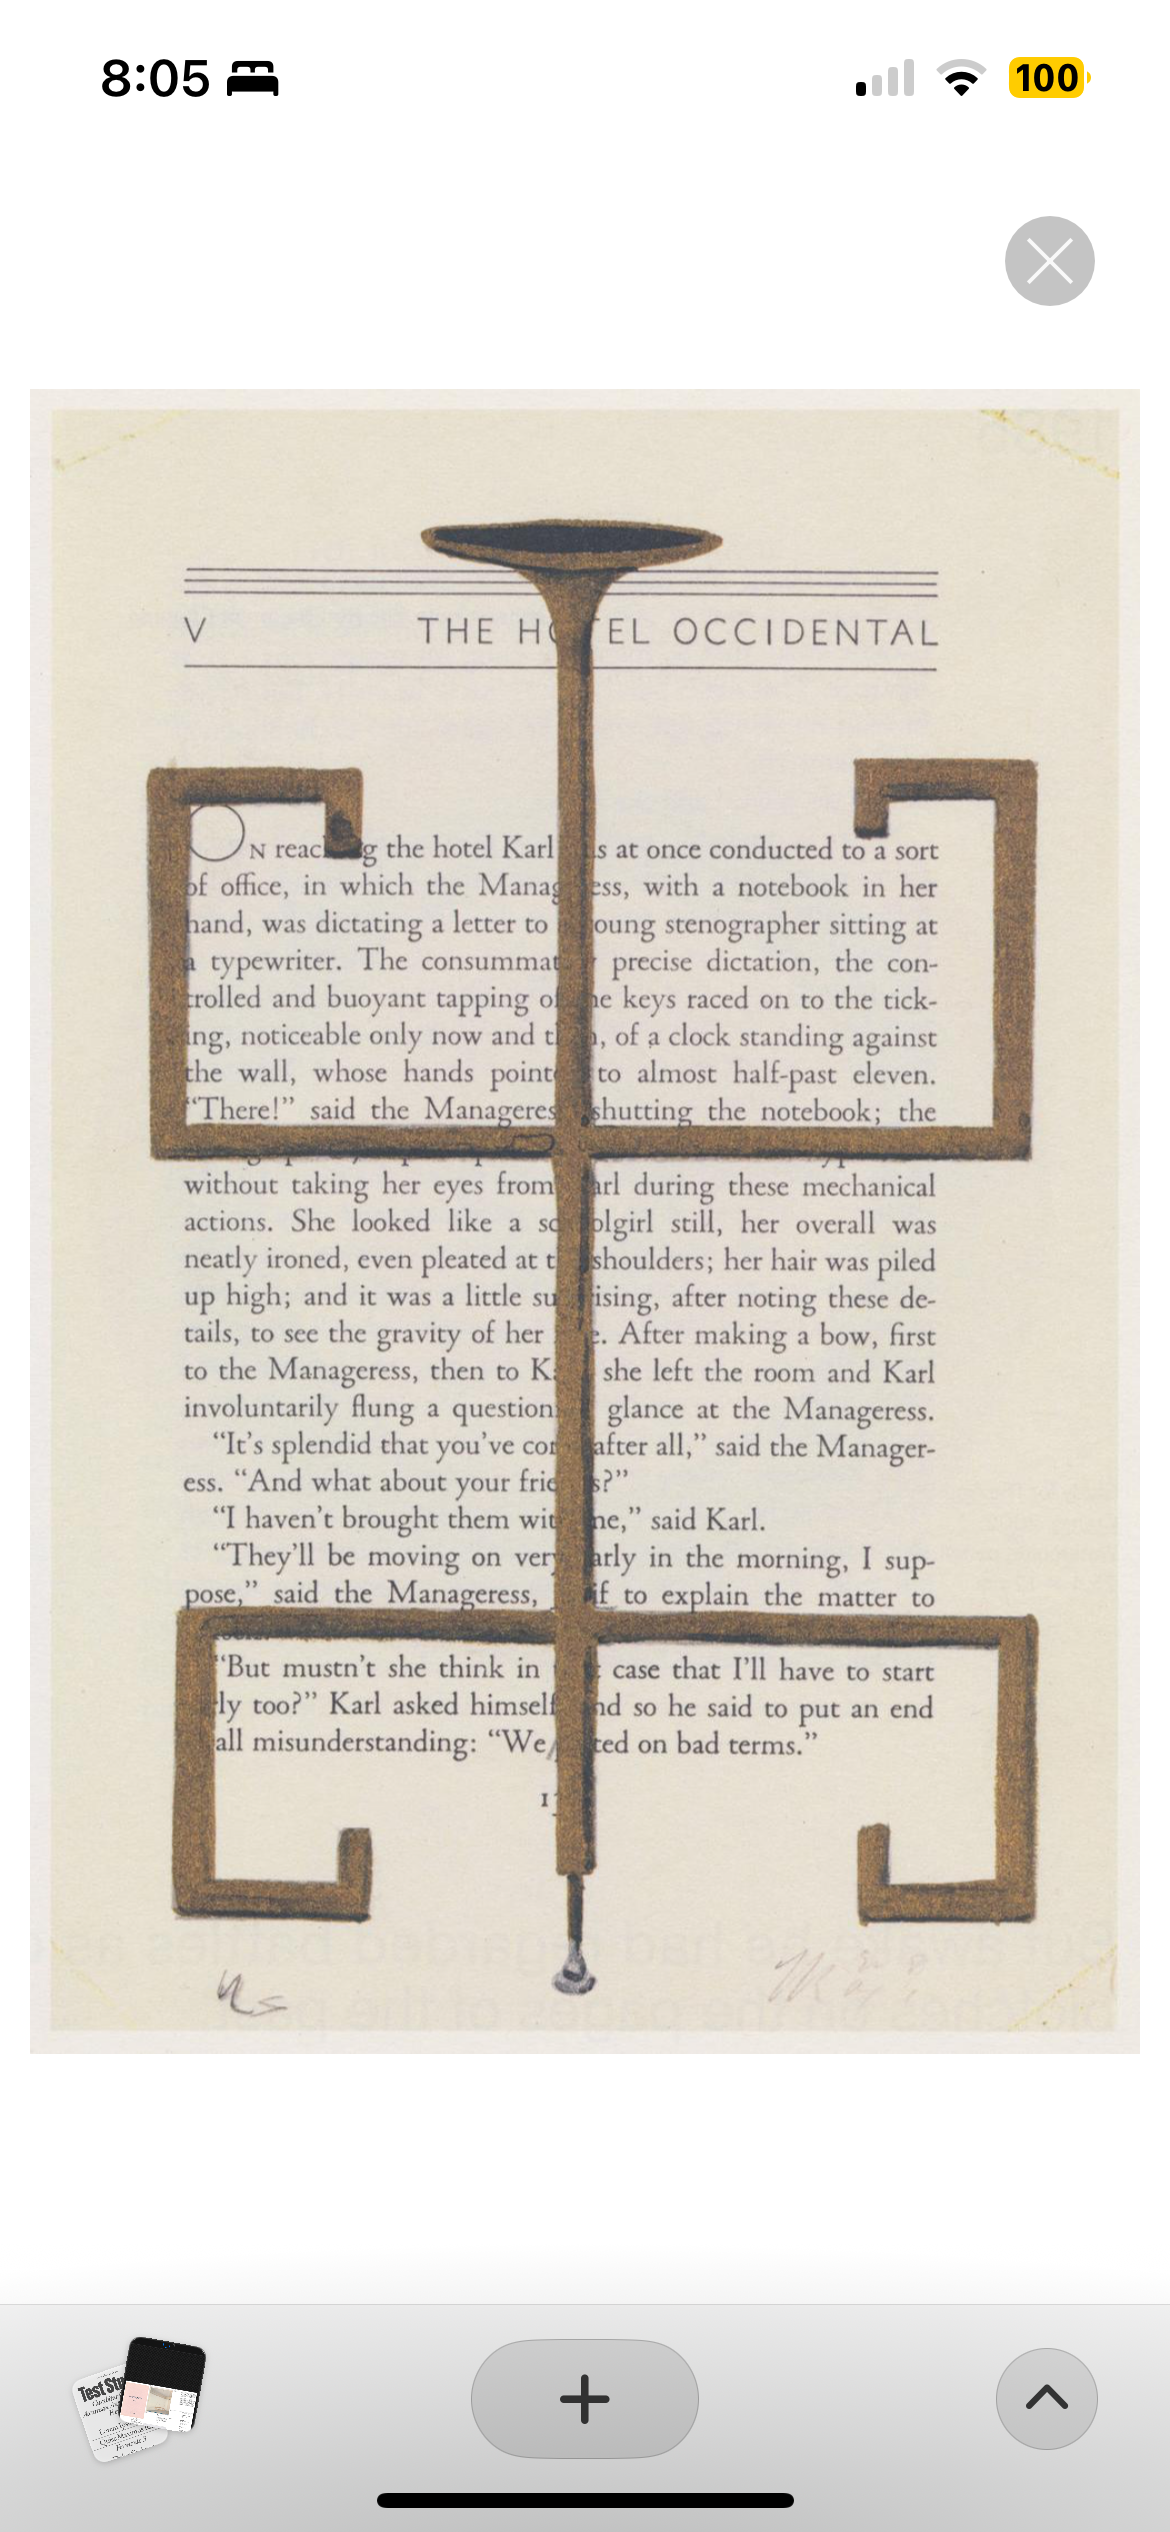 8:05
100
V THE HOTEL OCCIDENTAL
ON reaching the hotel Karl was at once conducted to a sort
of office, in which the Manageress, with a notebook in her
hand, was dictating a letter to a young stenographer sitting at
a typewriter. The consummately precise dictation, the con-
trolled and buoyant tapping of the keys raced on to the tick-
ing, noticeable only now and then, of a clock standing against
the wall, whose hands pointed to almost half-past eleven.
"There!" said the Manageress, shutting the notebook; the
without taking her eyes from Karl during these mechanical
actions. She looked like a schoolgirl still, her overall was
neatly ironed, even pleated at the shoulders; her hair was piled
up high; and it was a little surprising, after noting these de-
tails, to see the gravity of her face. After making a bow, first
to the Manageress, then to Karl, she left the room and Karl
involuntarily flung a questioning glance at the Manageress.
"It's splendid that you've come after all," said the Manager-
ess. "And what about your friends?"
"I haven't brought them with me," said Karl.
"They'll be moving on very early in the morning, I sup-
pose," said the Manageress, as if to explain the matter to
"But mustn't she think in that case that I'll have to start
early too?" Karl asked himself, and so he said to put an end
all misunderstanding: "We parted on bad terms."
Test Stu